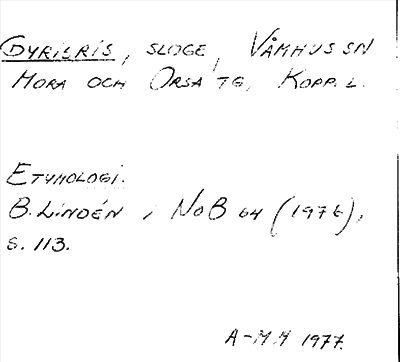 GYRISRIS, SLOGE, VÅMHUS SN
MORA OCH ORSA TG, KOPP. L.
ETYMOLOGI:
B. LINDÉN i NoB 64 (1976),
S. 113.
A-M.H 1977.